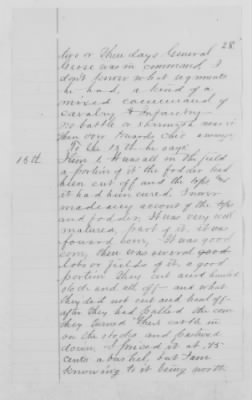 28
two or three days General
was in command I
don't know what regiments
he had, a kind of a
mixed command of
cavalry & Infantry
no battle
then our Guards
To the 15th he says
15th
Item 1. It was all in the field
a portion of it the fodder had
been cut off and the tops
it had been cured. I never
made any account of the tops
and fodder. It was very well
matured, part of it. it was
corn, It was good
corn, there was several good
lots or fields of it. a good
portion they cut
stock and all off - and what
they did not cut and haul off
after they had the corn
they turned their cattle in
on the stocks and
down. I priced it at .75
cents a bushel, but I am
knowing to it being worth